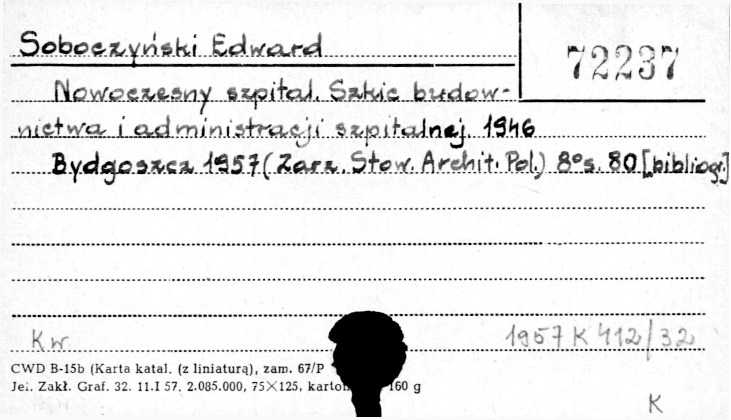 Soboczyński Edward
72237
Nowoczesny szpital. Szkic budow-
nictwa i administracji szpitalnej. 1946
Bydgoszcz 1957 (Zarz. Stow. Archit. Pol.) 8° s. 80 [bibliogr.]
Kw.
1957 K 412/32
CWD B-15b (Karta katal. (z liniaturą), zam. 67/P
Jel. Zakł. Graf. 32. 11.I 57. 2.085.000, 75×125, karton 160 g
K